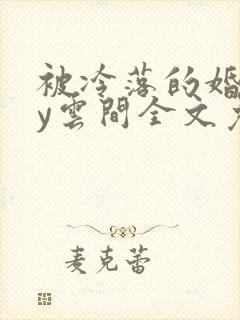 被冷落的婚
y雲間全文
麦克蕾